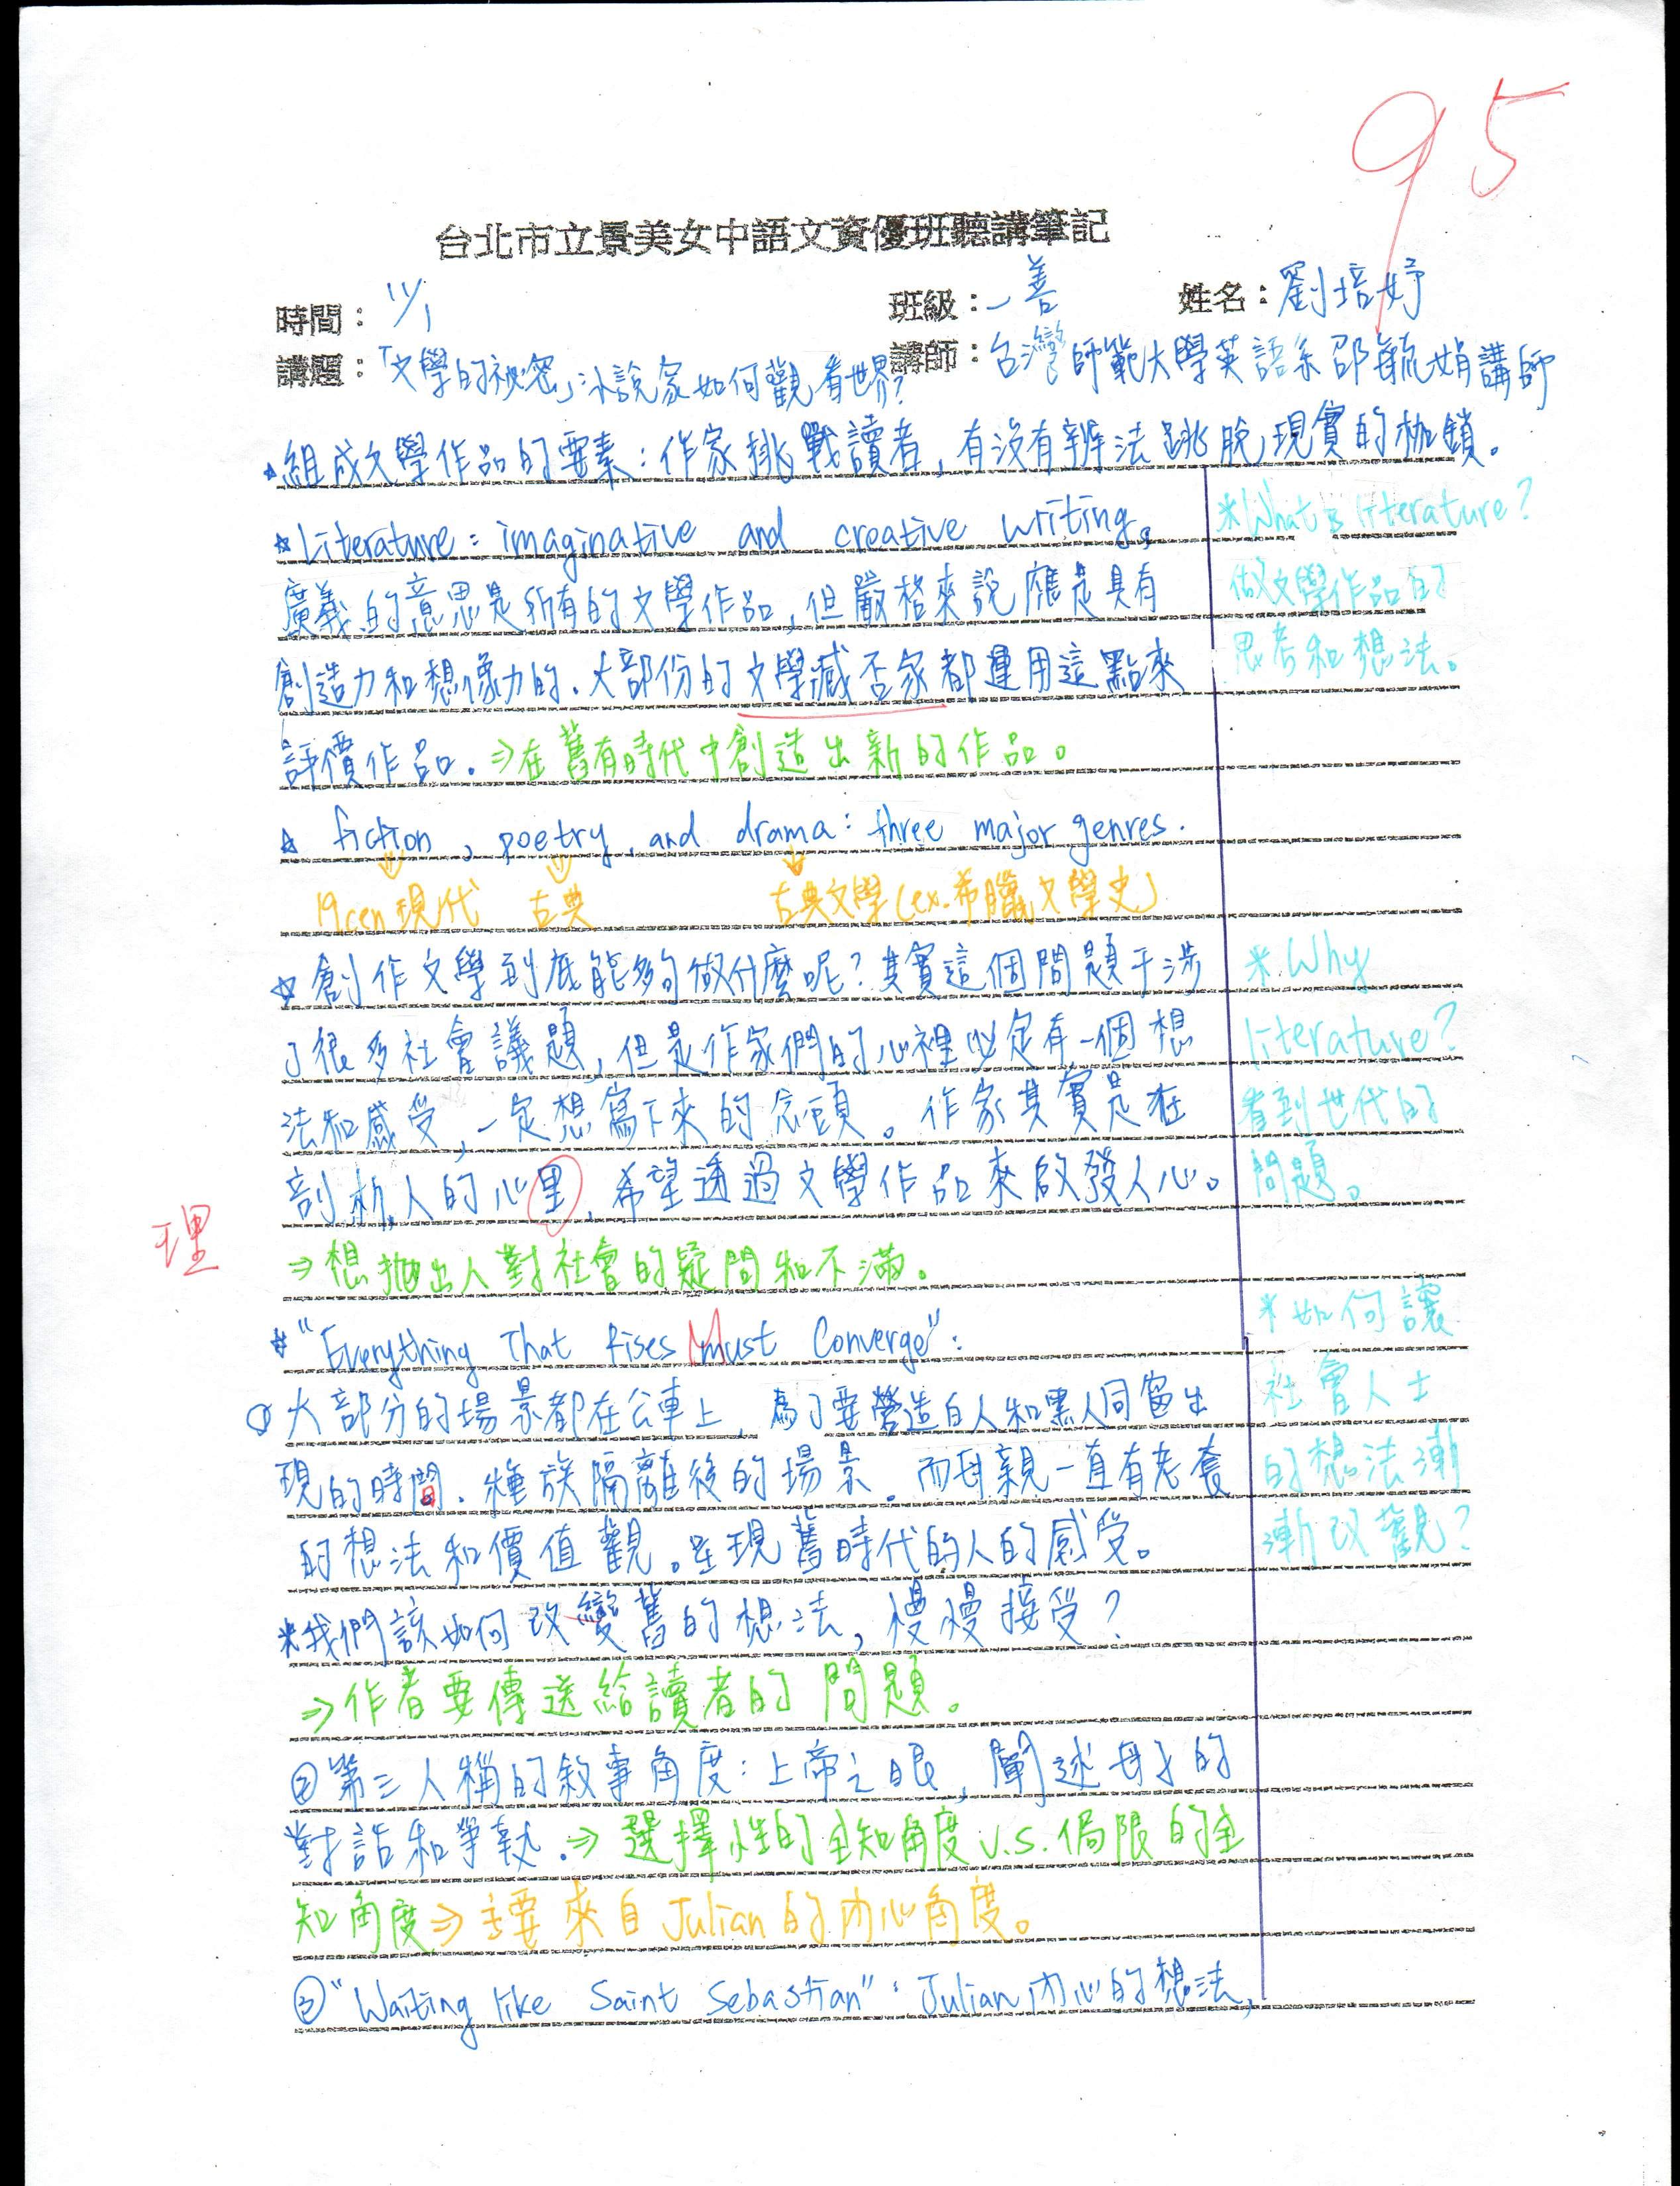 95
台北市立景美女中語文資優班聽講筆記
時間：11/1 班級：一善 姓名：劉培妤
講題：「文學的祕密」小說家如何觀看世界? 講師：台灣師範大學英語系邵毓娟講師
☆組成文學作品的要素：作家挑戰讀者，有沒有辦法跳脫現實的枷鎖。
☆Literature: imaginative and creative writing。
*What's literature?
廣義的意思是所有的文學作品，但嚴格來說應是具有
做文學作品的
創造力和想像力的。大部份的文學臧否家都運用這點來
思考和想法。
評價作品。⇒在舊有時代中創造出新的作品。
☆ fiction, poetry, and drama: three major genres.
19cen現代 古典 古典文學(ex.希臘文學史)
☆創作文學到底能夠做什麼呢?其實這個問題干涉
*Why
了很多社會議題，但是作家們的心裡必定有一個想
literature?
法和感受，一定想寫下來的念頭。作家其實是在
看到世代的
剖析人的心里，希望透過文學作品來啟發人心。
問題。
理
⇒想拋出人對社會的疑問和不滿。
*如何讓
☆"Everything That Rises Must Converge":
①大部分的場景都在公車上，為了要營造白人和黑人同留出
社會人士
現的時間。種族隔離後的場景。而母親一直有老套
的想法漸
的想法和價值觀。呈現舊時代的人的感受。
漸改觀?
*我們該如何改變舊的想法，慢慢接受?
⇒作者要傳送給讀者的問題。
②第三人稱的敘事角度：上帝之眼，闡述母子的
對話和爭執。⇒選擇性的全知角度v.s.侷限的全
知角度⇒主要來自Julian的內心角度。
③"Waiting like Saint Sebastian"：Julian內心的想法，